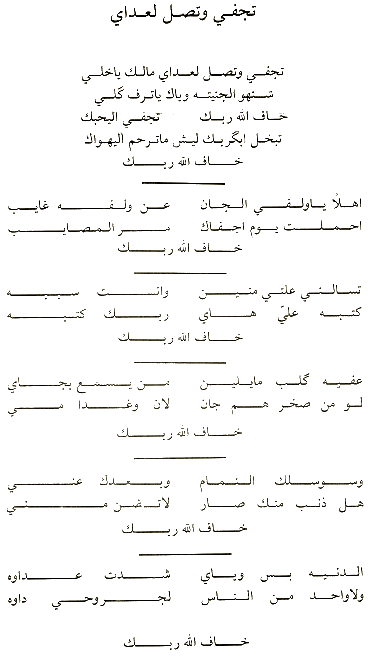 تجفي وتصل لعداي
تجفي وتصل لعداي مالك ياخلي
شنهو الجنيته وياك ياترف گلي
خاف الله ربك تجفي اليحبك
تبخل ابگربك ليش ماترحم اليهواك
خاف الله ربك
اهلاً ياولفي الجان عن ولفه غايب
احملت يوم اجفاك مر المصايب
خاف الله ربك
تسالني علتي منين وانت سببه
كتبه عليّ هاي ربك كتبه
خاف الله ربك
عفيه گلب مايلين من يسمع بجاي
لو من صخر هم جان لان وغدا مي
خاف الله ربك
وسوسلك النمام وبعدك عني
هل ذنب منك صار لاتضن مني
خاف الله ربك
الدنيه بس وياي شدت عداوه
ولاواحد من الناس لجروحي داوه
خاف الله ربك